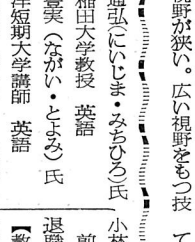 視野が狭い。広い視野をもつ技
通弘(にいじま・みちひろ)氏
稲田大学教授　英語
豊実(ながい・とよみ)氏
洋短期大学講師　英語
小林
前
退職
【教